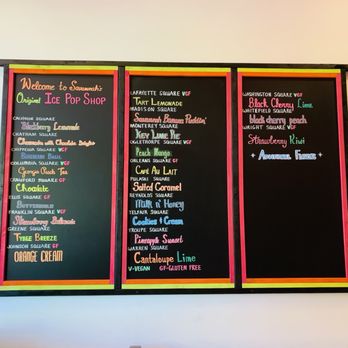 Welcome to Savannah's
Original Ice Pop Shop
CALHOUN SQUARE
Blackberry Lemonade
CHATHAM SQUARE
Cheesecake with Chocolate Delight
CHIPPEWA SQUARE VGF
COLUMBIA SQUARE VGF
Georgia Peach Tea
CRAWFORD SQUARE GF
Chocolate
ELLIS SQUARE GF
Butterscotch
FRANKLIN SQUARE VGF
Strawberry
GREENE SQUARE
TYBEE BREEZE
JOHNSON SQUARE GF
ORANGE CREAM
LAFAYETTE SQUARE VGF
TART LEMONADE
MADISON SQUARE
Savannah Banana Puddin'
MONTEREY SQUARE
KEY LIME PIE
OGLETHORPE SQUARE VGF
Peach Mango
ORLEANS SQUARE GF
CAFE AU LAIT
PULASKI SQUARE
Salted Caramel
REYNOLDS SQUARE
Milk n' Honey
TELFAIR SQUARE
Cookies & Cream
TROUPE SQUARE
Pineapple Sunset
WARREN SQUARE
Cantaloupe Lime
V-VEGAN GF-GLUTEN FREE
WASHINGTON SQUARE VGF
Black Cherry Lime
WHITEFIELD SQUARE
black cherry peach
WRIGHT SQUARE VGF
Strawberry Kiwi